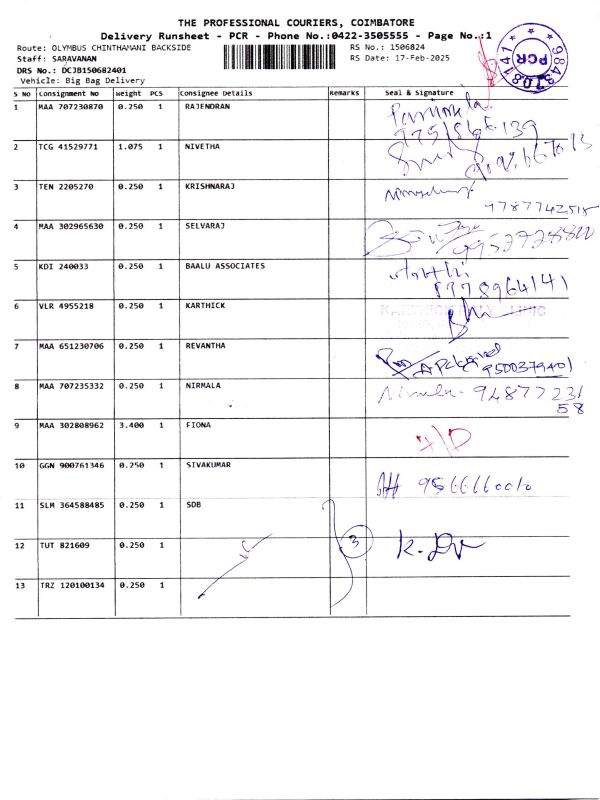 THE PROFESSIONAL COURIERS, COIMBATORE
Delivery Runsheet - PCR - Phone No.:0422-3505555 - Page No.:1
Route: OLYMBUS CHINTHAMANI BACKSIDE RS No.: 1506824
Staff: SARAVANAN RS Date: 17-Feb-2025
DRS No.: DCJB150682401
Vehicle: Big Bag Delivery
PCR
S No Consignment No Weight PCS Consignee Details Remarks Seal & Signature
1 MAA 707230870 0.250 1 RAJENDRAN
2 TCG 41529771 1.075 1 NIVETHA
3 TEN 2205270 0.250 1 KRISHNARAJ
9787742515
4 MAA 302965630 0.250 1 SELVARAJ
5 KDI 240033 0.250 1 BAALU ASSOCIATES
8778964141
6 VLR 4955218 0.250 1 KARTHICK
7 MAA 651230706 0.250 1 REVANTHA
9500379401
8 MAA 707235332 0.250 1 NIRMALA Nirmala - 94877231
58
9 MAA 302808962 3.400 1 FIONA
10 GGN 900761346 0.250 1 SIVAKUMAR
9566660010
11 SLM 364588485 0.250 1 SDB
12 TUT 821609 0.250 1 3
13 TRZ 120100134 0.250 1